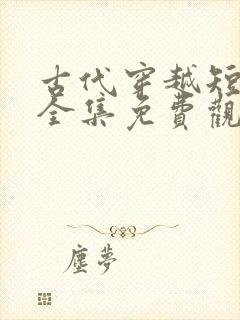 古代穿越短
全集免費觀
塵夢